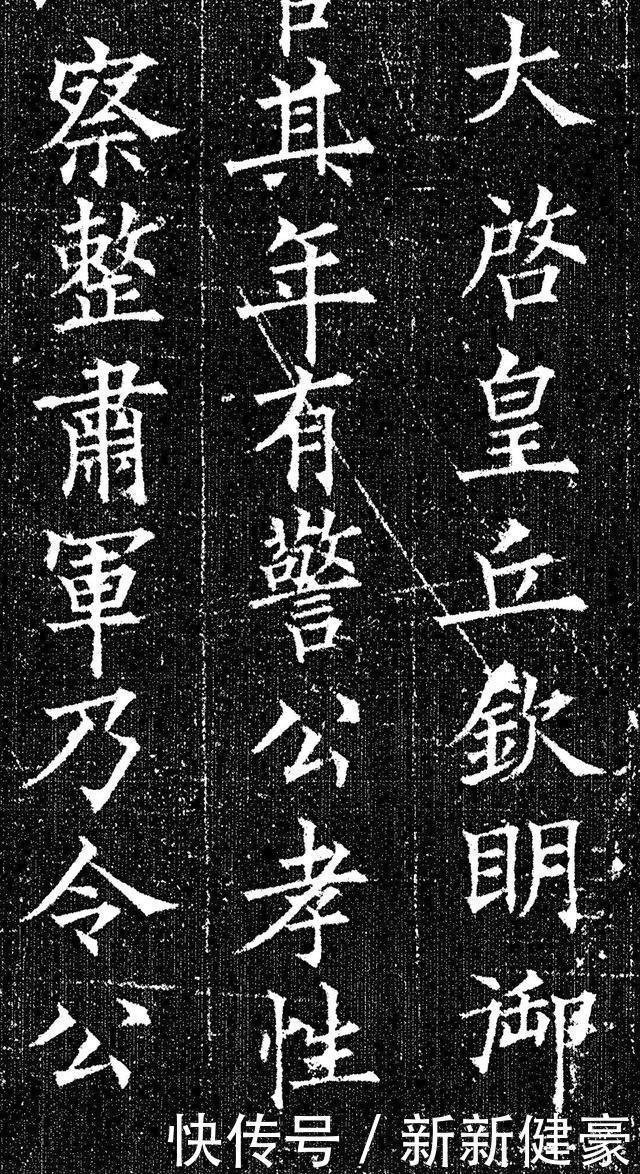 大啓皇丘欽明御
其年有警公孝性
察整肅軍乃令公
快传号/新新健豪